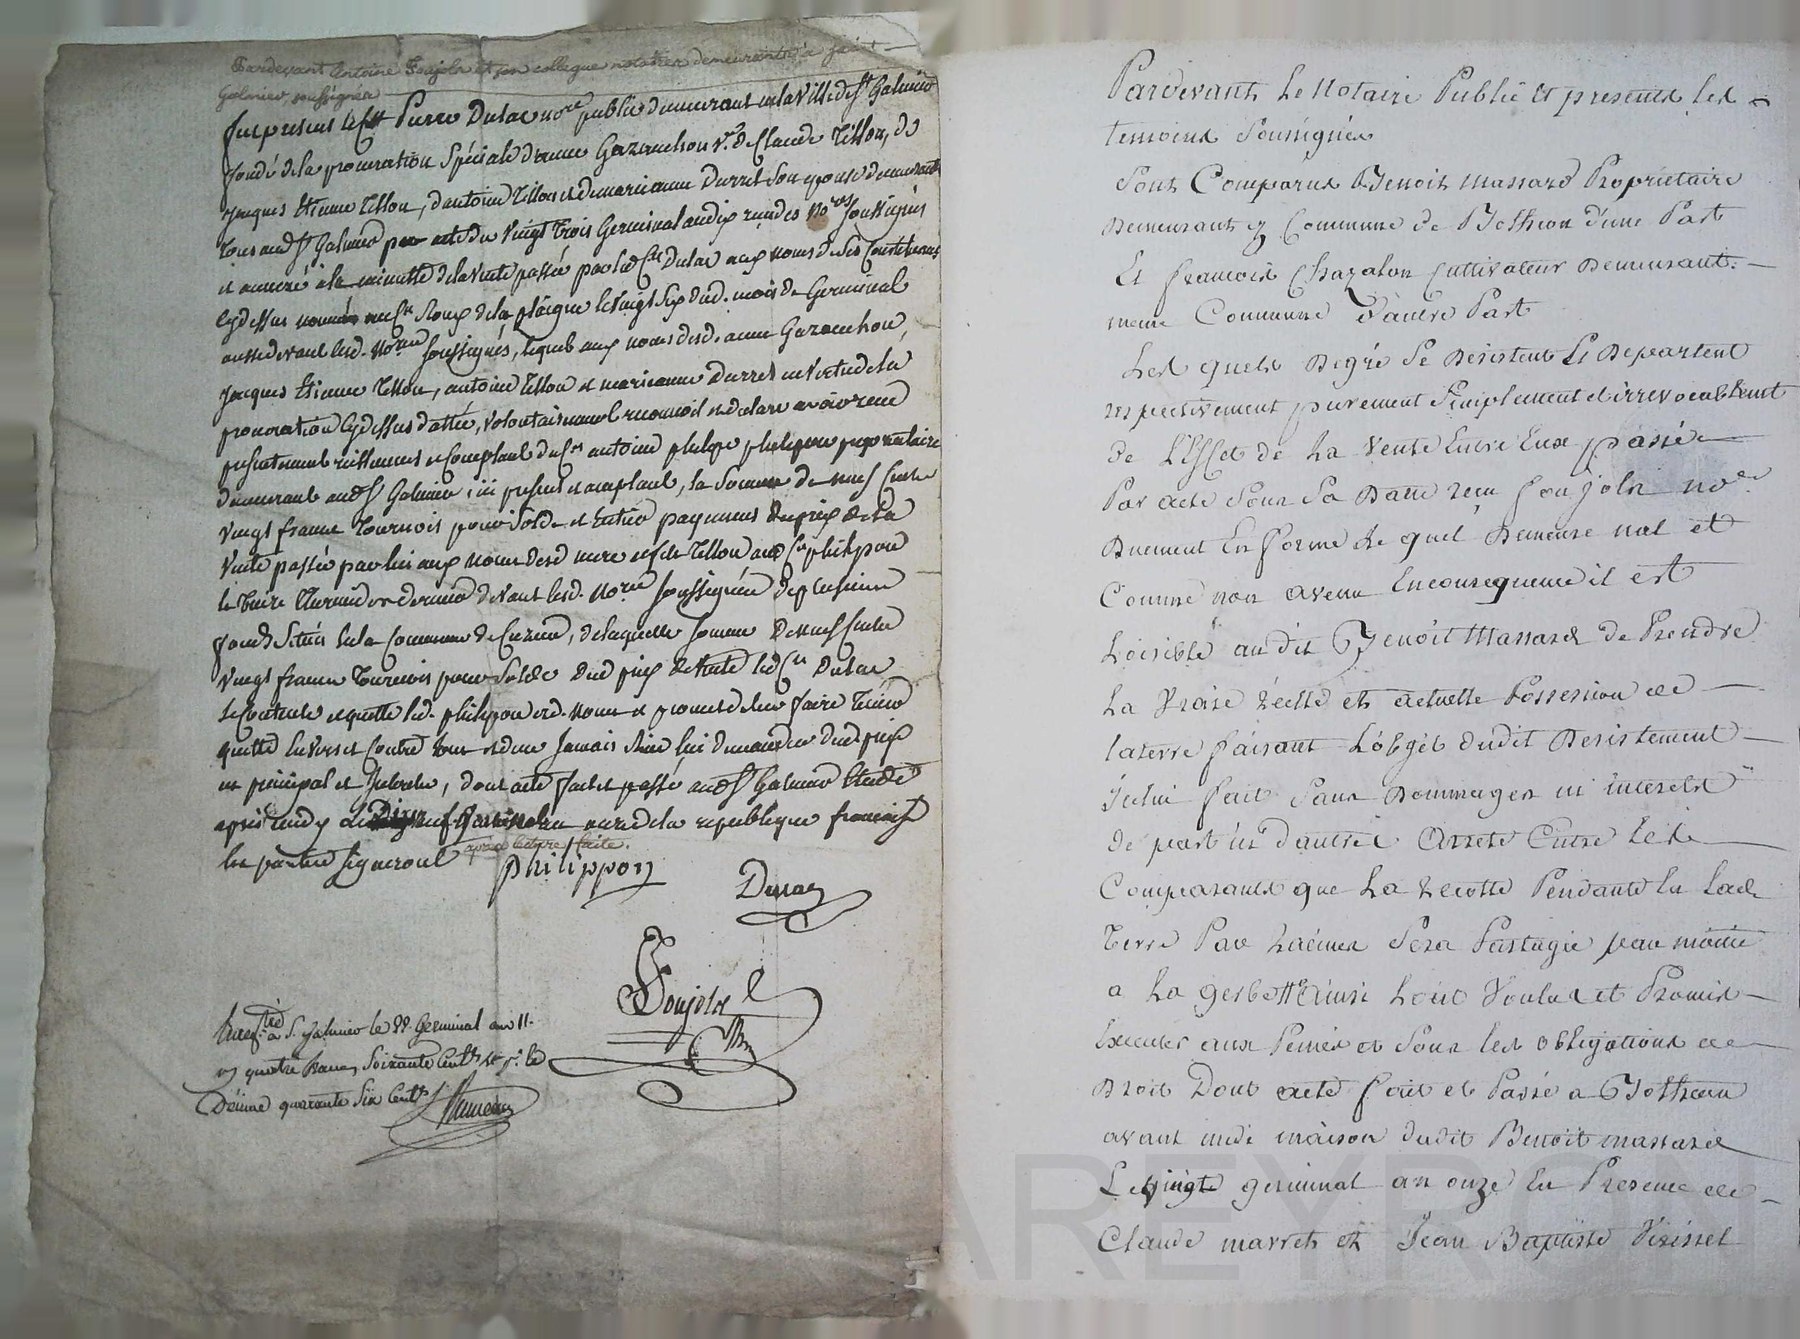 Pardevant Antoine Poujols et son collegue notaires demeurants à saint
Galmier, soussignés
fut present le Cen Pierre Dulac nore public demeurant en la Ville de St Galmier
fondé de la procuration Spéciale d'anne Gazanchon ve de Claude Tisson, de
jacques Etienne Tisson, d'antoine Tisson et de marianne Durret Son epouse demeurants
tous aud. St Galmier par acte du Vingt trois Germinal an dix reçu des Nores soussignés
et annexé à la minutte de la Vente passée par led. Cen Dulac aux noms de ses Constituants
cydessus nommés au Cen de la plaigne le Vingt Six dud. mois de Germinal
aussi devant lesd. Nores soussignés, lequel aux noms desd. anne Gazanchon,
jacques Etienne Tisson, antoine Tisson et marianne Durret en Vertu de la
procuration cydessus dattée, volontairement reconnoit et declare avoir reçu
presentement réellement et Comptant du Cen antoine philippon proprietaire
demeurant aud. St Galmier ici present et acceptant, la Somme de neuf Cents
Vingt francs Tournois pour Solde et Entier payement du prix de la
Vente passée par lui aux noms desd. mere et fils Tisson aud. Cen philippon
le treize devant lesd. Nores soussignés de plusieurs
fonds Situés en la Commune de Cuzieu, de laquelle Somme De neuf Cents
Vingt francs Tournois pour Solde Dud. prix de Vente led. Cen Dulac
se Contente et quitte led. philippon esd. noms et promet de l'en faire Tenir
quitte Envers et Contre tous et de ne jamais Rien lui demander dud. prix
en principal et Interets, dont acte fait et passé aud. St Galmier Etude
après midy le Germinal an onze de la republique française
les parties signeront après lecture faite.
Philippon
Dulac
Poujols
Enregtré à St. Galmier le 22 Germinal an 11.
R quatre francs Soixante Centes et pr. le
Décime quarante Six Centes
Pardevant Le Notaire Public et presents les
temoins Soussignés
Sont Comparus Benoit Massard Propriétaire
Demeurant Commune de Bothéon d'une Part
Et francois Chazalon Cultivateur Demeurant
meme Commune D'autre Part
Les quels Degré Se Desistent Et Departent
respectivement purement Simplement et irrevocablement
de L'Effet de La Vente Entre Eux passée
Par acte Sous Sa Datte reçu Poujols nore
Duement En forme Le quel Demeure nul et
Comme non avenu Enconsequence il est
Loisible audit Benoit Massard de Prendre
La Vraie réelle et actuelle Possession de
la terre faisant L'objet dudit Desistement
icelui fait Sans Dommages ni interets
de part ni d'autre Arreté Entre Les
Comparants que La recolte Pendante En Lade
Terre Par racines Sera Partagée par moitié
a La gerbe Ainsi Tout Voulu et Promis
Executer aux Peines et Sous Les obligations de
Droit Dont acte fait et Passé a Bothéon
avant midi maison dudit Benoit Massard
Le Vingt germinal an onze En Presence de
Claude marret et Jean Baptiste Virissel
CHAREYRON